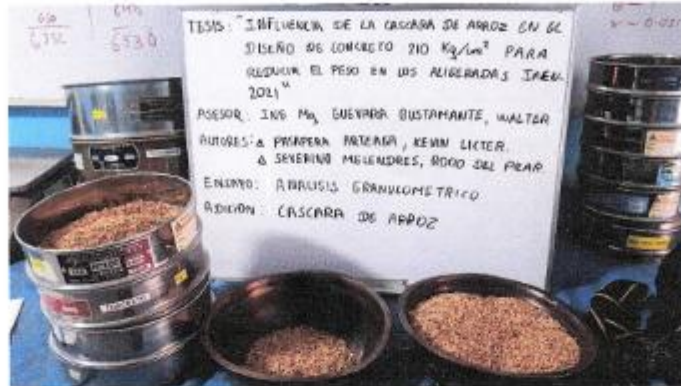 TESIS: "INFLUENCIA DE LA CASCARA DE ARROZ EN EL
DISEÑO DE CONCRETO 210 Kg/cm² PARA
REDUCIR EL PESO EN LOS ALIGERADAS JAEN
2021"
ASESOR: ING Mg GUEVARA BUSTAMANTE, WALTER
AUTORES: Δ PASAPERA ARTEAGA, KEVIN LICTER.
Δ SEVERINO MELENDRES, ROCIO DEL PILAR
ENSAYO: ANALISIS GRANULOMETRICO
ADICION: CASCARA DE ARROZ